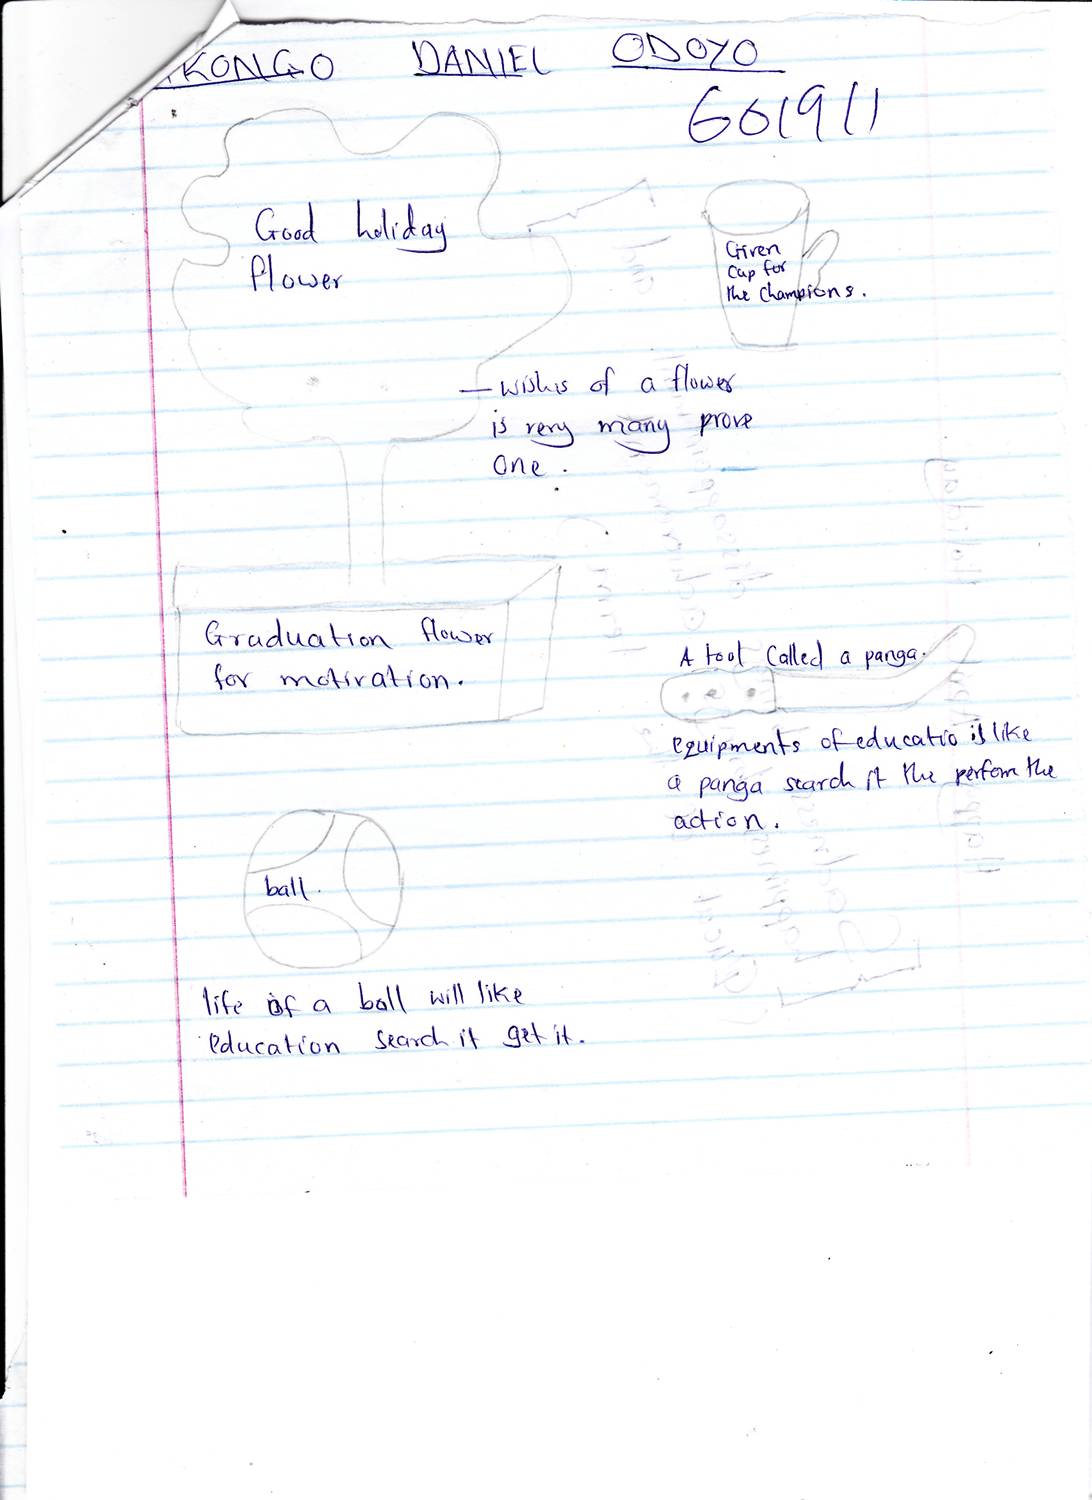 OKONGO DANIEL ODOYO
G019/1
Good holiday
flower
Given
Cup for
the Champions.
— wishis of a flower
is very many prove
one.
Graduation flower
for motivation.
A tool Called a panga.
equipments of educatio is like
a panga search it the perfom the
action.
ball.
life of a ball will like
education search it get it.